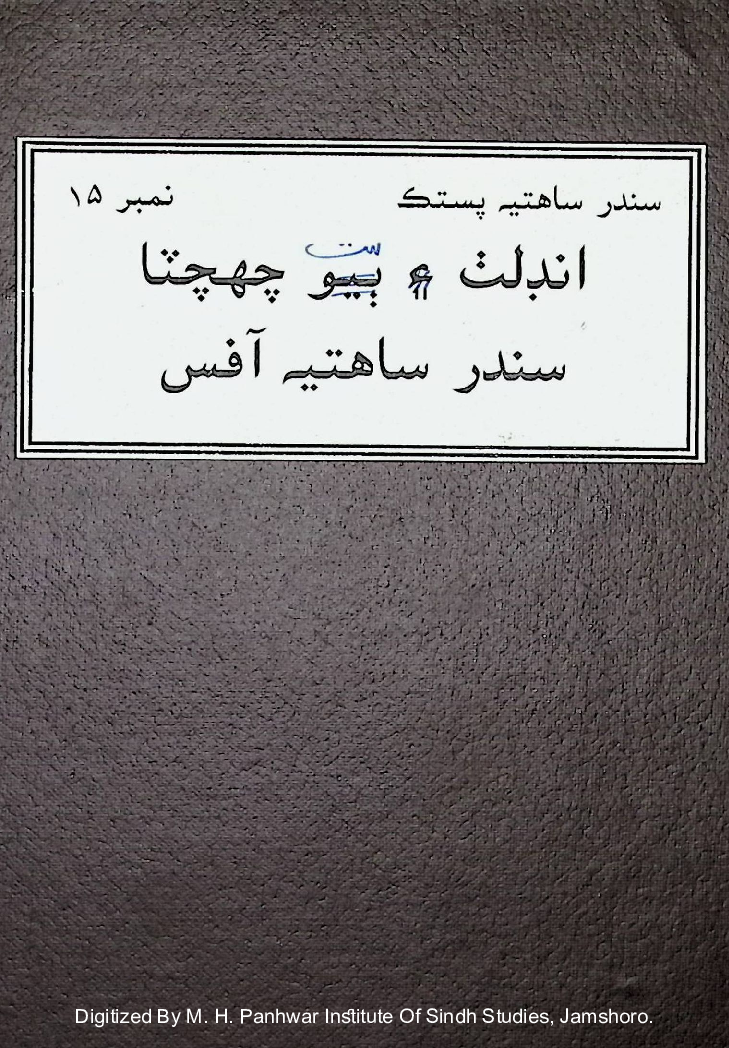 سندر ساهتيہ پستڪ نمبر ١٥
انڊلٺ ۽ ٻيو چهچٽا
سندر ساهتيہ آفس
Digitized By M. H. Panhwar Institute Of Sindh Studies, Jamshoro.